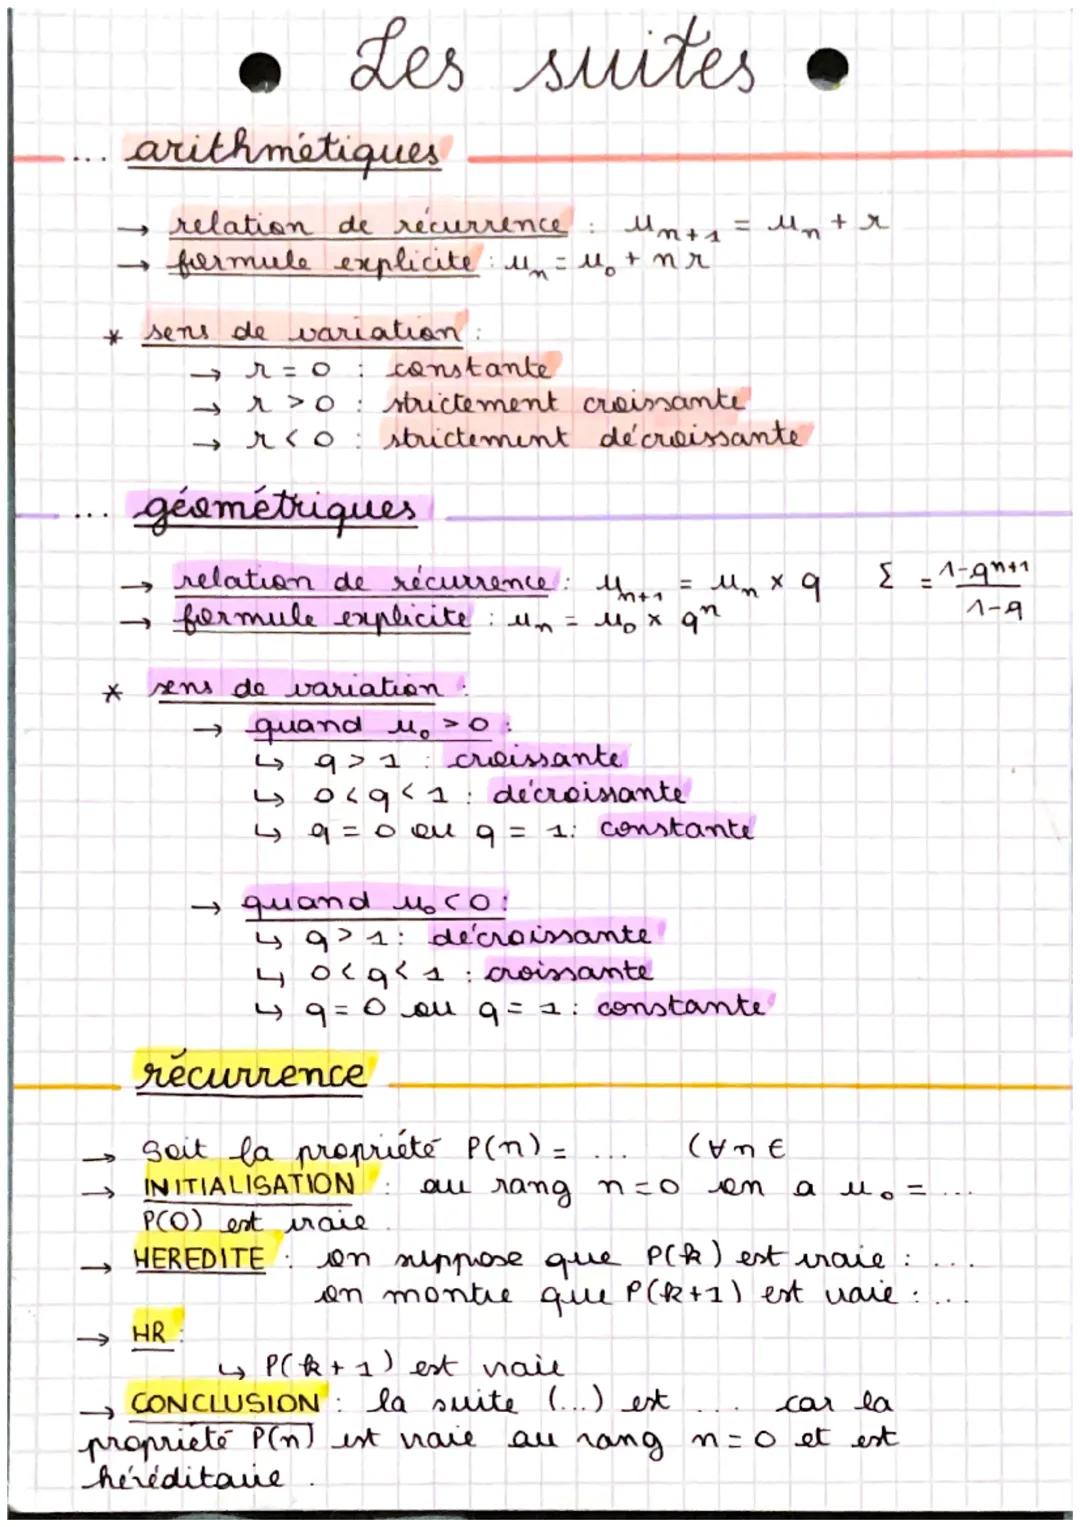 Les suites
... arithmétiques
→ relation de récurrence : u_{n+1} = u_n + r
→ formule explicite : u_n = u_0 + nr
* sens de variation :
→ r = 0 : constante
→ r > 0 : strictement croissante
→ r < 0 : strictement décroissante
... géométriques
→ relation de récurrence : u_{n+1} = u_n × q    Σ = \frac{1-q^{n+1}}{1-q}
→ formule explicite : u_n = u_0 × q^n
* sens de variation :
→ quand u_0 > 0 :
↳ q > 1 : croissante
↳ 0 < q < 1 : décroissante
↳ q = 0 ou q = 1 : constante
→ quand u_0 < 0 :
↳ q > 1 : décroissante
↳ 0 < q < 1 : croissante
↳ q = 0 ou q = 1 : constante
récurrence
→ Soit la propriété P(n) = ... (∀n ∈
→ INITIALISATION : au rang n = 0 on a u_0 = ...
P(0) est vraie.
→ HEREDITE : on suppose que P(k) est vraie : ...
on montre que P(k+1) est vraie : ...
→ HR :
↳ P(k+1) est vraie
→ CONCLUSION : la suite (...) est ... car la
propriété P(n) est vraie au rang n = 0 et est
héréditaire.